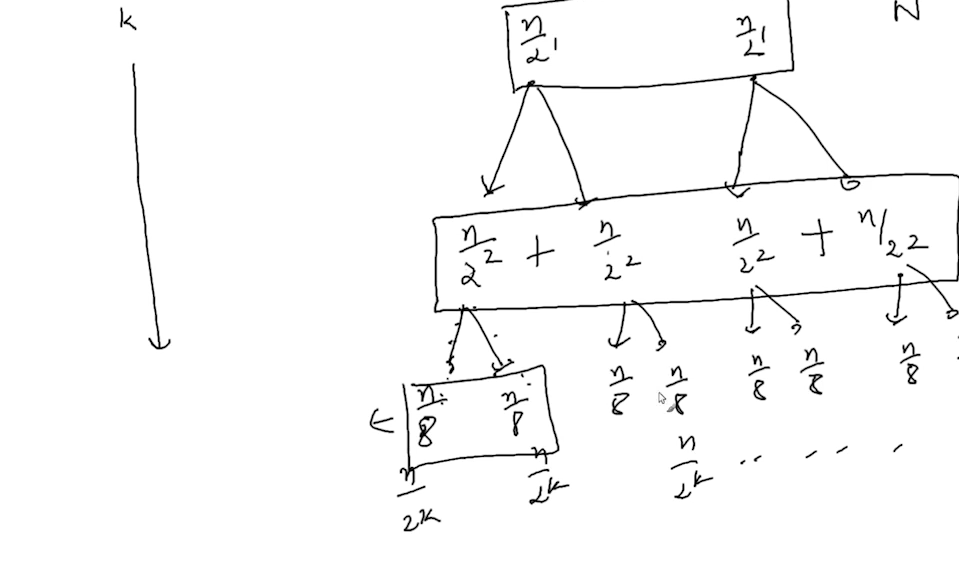 k
n/2¹ n/2¹ N
n/2² + n/2² n/2² + n/2²
n/8 n/8 n/8 n/8 n/8 n/8 n/8
n/2ᵏ n/2ᵏ n/2ᵏ .. -- -